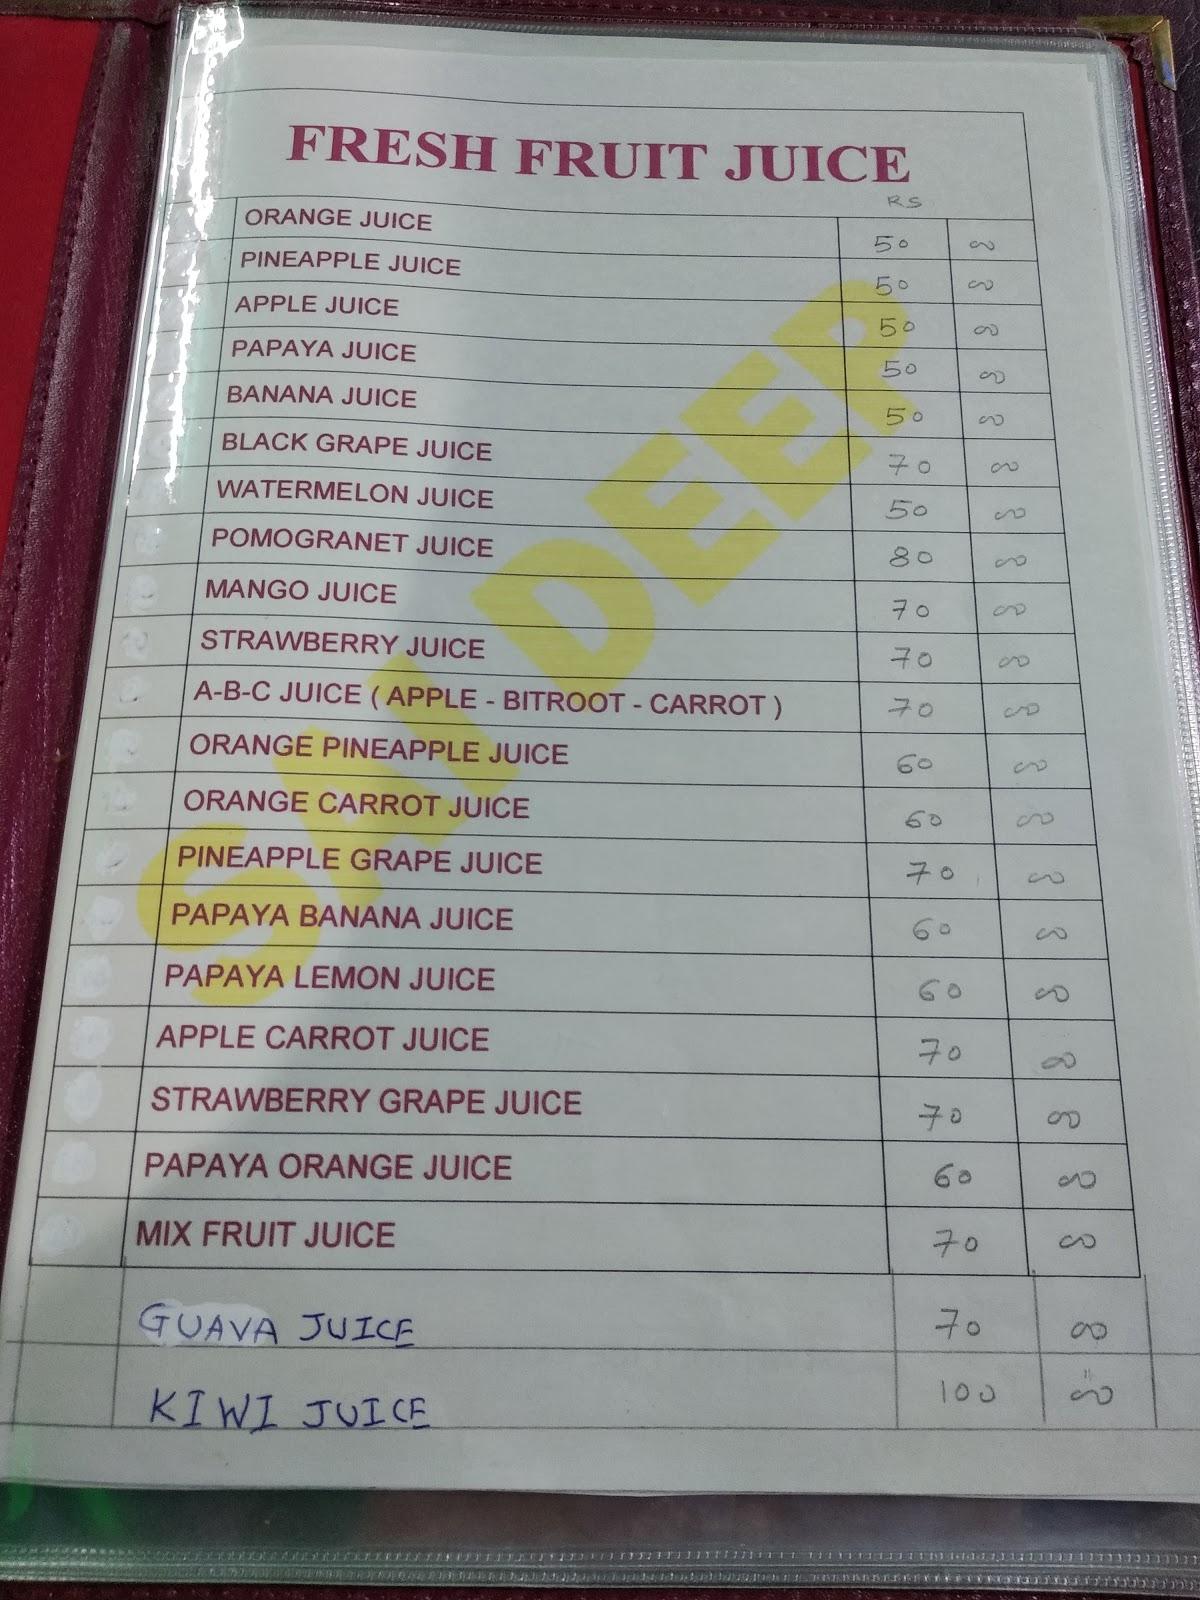 FRESH FRUIT JUICE
RS
ORANGE JUICE 50 00
PINEAPPLE JUICE 50 00
APPLE JUICE 50 00
PAPAYA JUICE 50 00
BANANA JUICE 50 00
BLACK GRAPE JUICE 70 00
WATERMELON JUICE 50 00
POMOGRANET JUICE 80 00
MANGO JUICE 70 00
STRAWBERRY JUICE 70 00
A-B-C JUICE ( APPLE - BITROOT - CARROT ) 70 00
ORANGE PINEAPPLE JUICE 60 00
ORANGE CARROT JUICE 60 00
PINEAPPLE GRAPE JUICE 70 00
PAPAYA BANANA JUICE 60 00
PAPAYA LEMON JUICE 60 00
APPLE CARROT JUICE 70 00
STRAWBERRY GRAPE JUICE 70 00
PAPAYA ORANGE JUICE 60 00
MIX FRUIT JUICE 70 00
GUAVA JUICE 70 00
KIWI JUICE 100 00
SAI DEEP